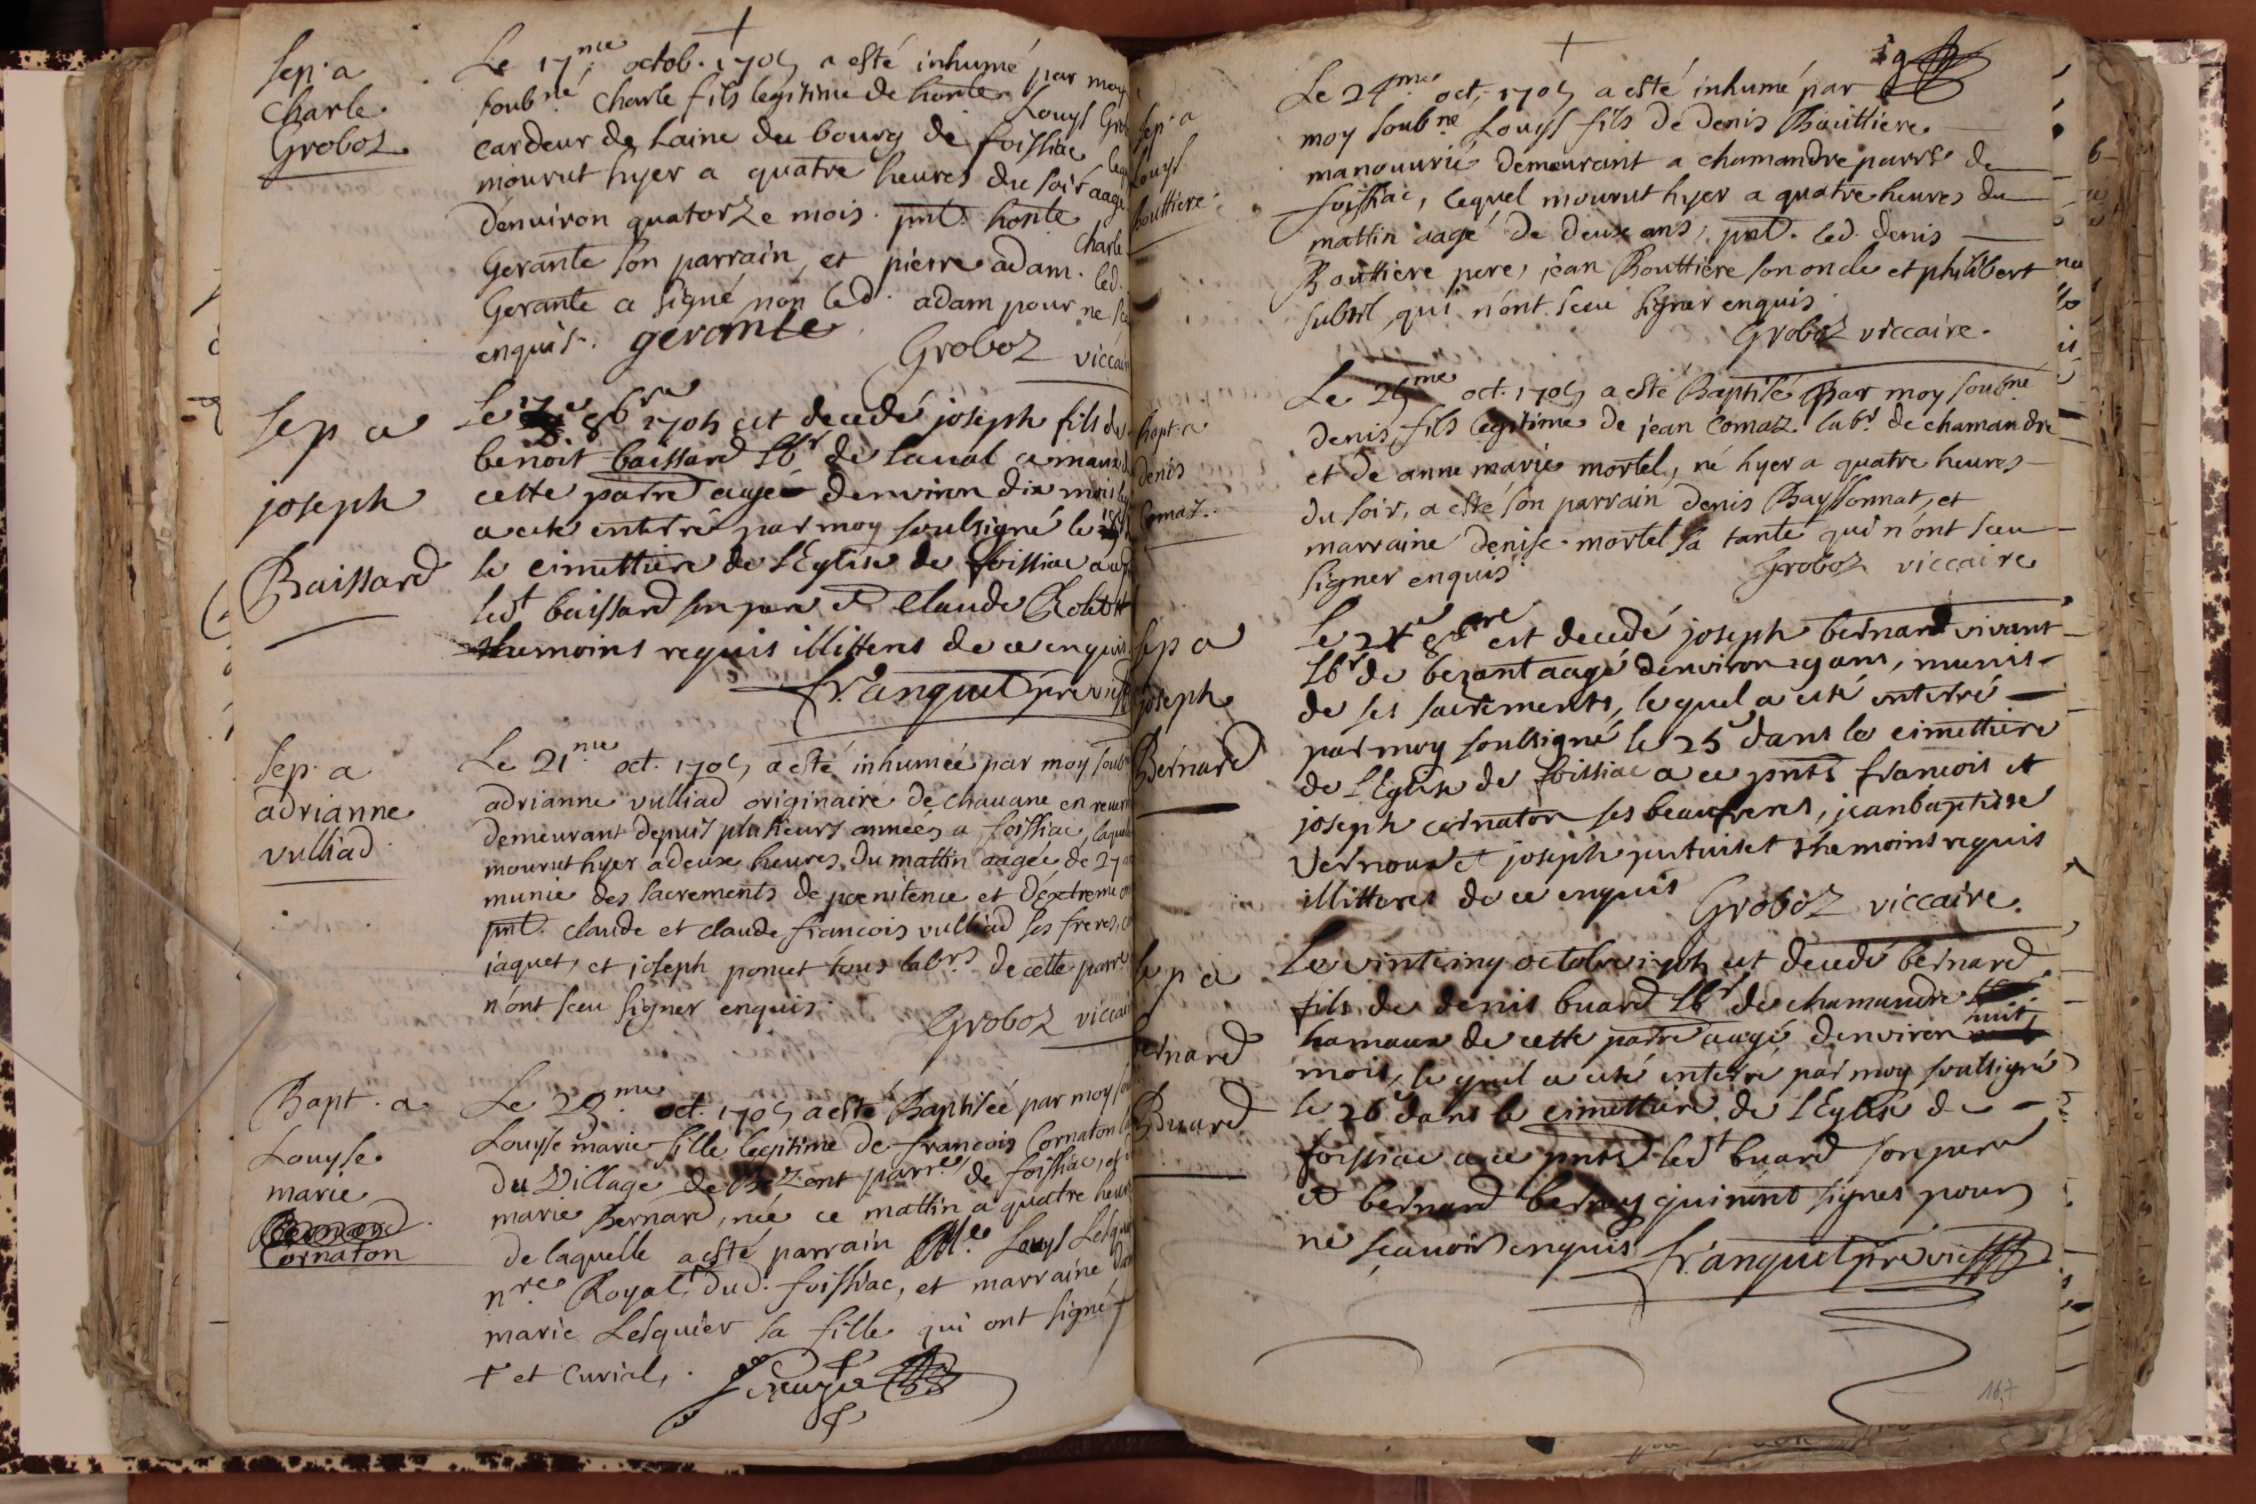 Sep. a
Charle
Groboz
Le 17me octob. 1705 a esté inhumé par moy
soubné Charle fils legitime de honte Louys Gro
cardeur de Laine du bourg de foissiac leq
mourut hyer a quatre heures du soir aagé
denuiron quatorze mois. pnt. honte Charle
Gerante son parrain, et pierre adam. led.
Gerante a signé non led. adam pour ne sca
enquis. gerante
Groboz viccai
Sep a
joseph
Baissard
Le 17e 8bre 1705 est decedé joseph fils de
benoit baissard Lbr de Laual a
cette parre aagé denviron dix mois
a esté enterré par moy soubsigné le 18
le cimettiere de l'Eglise de foissiac
ledt baissard son pere et Claude
themoins requis illitteres de ce enquis
fr. anquet pre vic
Sep. a
adrianne
vulliad
Le 21me oct. 1705 a esté inhumée par moy soub
adrianne vulliad originaire de chauane en reverm
demeurant depuis plusieurs années a foissiac, laquelle
mourut hyer a deux heures du mattin aagée de 27
munie des sacrements de poenitence et d'extreme on
pnt. claude et claude francois vulliad ses freres,
jaquet, et joseph poncet tous labrs de cette parre
n'ont sceu signer enquis.
Groboz viccai
Bapt. a
Louyse
marie
Bernard
Cornaton
Le 23me oct. 1705 a esté Baptisée par moy sou
Louyse marie fille legitime de francois Cornaton
du Village de Bezont parre de foissiac, et
marie Bernard, née ce mattin a quatre heur
de laquelle a esté parrain Me Louys Lesqui
nre Royal dud. foissiac, et marraine
marie Lesquier sa fille qui ont signé +
+ et Curial,
19
sep. a
Louys
bouttiere
Le 24me oct. 1705 a esté inhumé par
moy soubné Louys fils de Denis Bouttiere
manouurié demeurant a chamandre parre de
foissiac, lequel mourut hyer a quatre heures du
mattin aagé de deux ans, pnt. led. denis
Bouttiere pere, jean Bouttiere son oncle et philibert
subtil, qui n'ont sceu signer enquis
Groboz viccaire.
bapt. a
denis
Comaz.
Le 25me oct. 1705 a esté Baptisé par moy soubné
denis, fils legitime de jean Comaz labr. de chamandre
et de anne marie mortel, né hyer a quatre heures
du soir, a esté son parrain denis Bayssonnat, et
marraine denise mortel sa tante qui n'ont sceu
signer enquis
Groboz viccaire
Sep a
joseph
Bernard
Le 24e 8bre est decedé joseph bernard vivant
Lbr de bezont aagé denviron 29 ans, munis
de ses sacrements, lequel a esté enterré
par moy soubsigné le 25e dans le cimettiere
de l'Eglise de foissiac a ce pnts francois et
joseph cornaton ses beaufreres, jean baptiste
Vernoux et joseph putuiset themoins requis
illitteres de ce enquis
Groboz viccaire.
sep a
bernard
Buard
Le vintcinq octobre 1705 est decedé bernard
fils de denis buard Lbr de chamandre
hamaux de cette parre aagé denviron huit
mois, lequel a esté enterré par moy soubsigné
le 26e dans le cimettiere de l'Eglise de
foissiac a ce pnts ledt buard son pere
et bernard qui n'ont signés pour
ne sçauoir enquis
fr. anquet pre vic
167